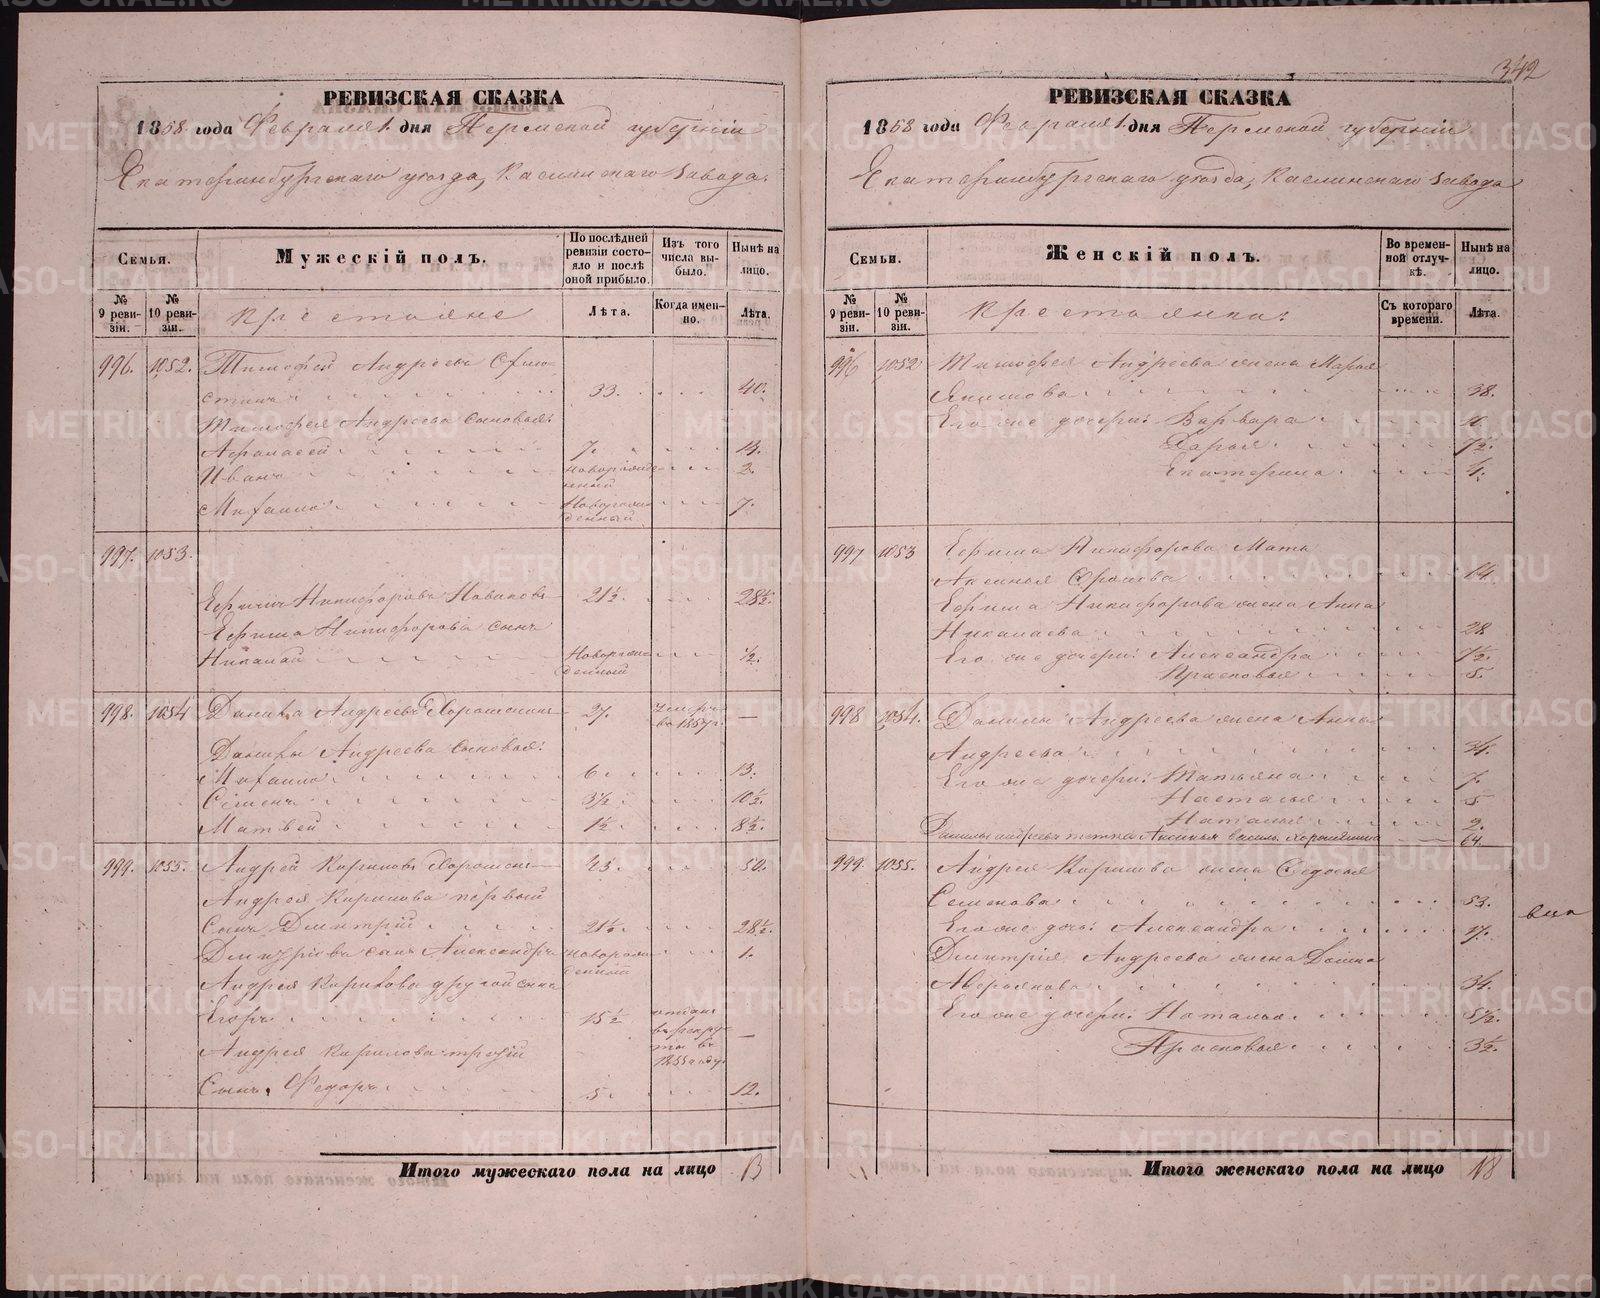 342
РЕВИЗСКАЯ СКАЗКА
1858 года Февраля 1. дня Пермской губерніи
Екатеринбургскаго уѣзда, Каслинскаго Завода.
Семья.
Мужескій полъ.
По послѣдней ревизіи состояло и послѣ оной прибыло.
Изъ того числа выбыло.
Нынѣ на лицо.
№ 9 ревизіи.
№ 10 ревизіи.
Крестьяне
Лѣта.
Когда именно.
Лѣта.
996. 1052. Тимофей Андреевъ
33. 40.
Тимофея Андреева сыновья:
Афанасей 7. 14.
Иванъ новорожденный 2.
Михаило Новорожденный 7.
997. 1053.
Ефимъ Никифоровъ 21½ 28½.
Ефима Никифорова сынъ
Николай Новорожденный ½.
998. 1054 Данила Андреевъ Хорошенинъ 27. умеръ въ 1857 г. —
Данилы Андреева сыновья:
Михаило 6. 13.
Семенъ 3½ 10½.
Матвей 1½ 8½.
999. 1055. Андрей Кириловъ 43. 50.
Андрея Кирилова первый
Сынъ Дмитрій 21½ 28½.
Дмитріевъ сынъ Александръ новорожденный 1.
Андрея Кирилова другой сынъ
Егоръ 15½ отданъ въ рекруты въ 1855 году. —
Андрея Кирилова третій
Сынъ, Федоръ 5. 12.
Итого мужескаго пола на лицо 13
РЕВИЗСКАЯ СКАЗКА
1858 года Февраля 1. дня Пермской губерніи
Екатеринбургскаго уѣзда, Каслинскаго Завода
Семьи.
Женскій полъ.
Во временной отлучкѣ.
Нынѣ на лицо.
№ 9 ревизіи.
№ 10 ревизіи.
Крестьянки:
Съ котораго времени.
Лѣта.
996 1052 Тимофея Андреева жена Марья
Якимова 38.
Его же дочери: Варвара
Дарья 7½.
Екатерина 4.
997 1053 Ефима Никифорова Мать
Аксинья Фролова 64.
Ефима Никифорова жена Анна
Николаева 28
Его же дочери: Александра 7½.
Прасковья 5.
998 1054. Данилы Андреева жена Анна
Андреева 34.
Его же дочери: Татьяна 7.
Настасья 5
Наталья 2.
Данилы Андреева тетка Аксинья 64.
999. 1055. Андрея Кирилова жена Федосья
Семенова 53.
Его же дочь: Александра 17.
Дмитрія Андреева жена Домна
Аверьянова 34.
Его же дочери: Наталья 5½.
Прасковья 3½.
Итого женскаго пола на лицо 18
METRIKI.GASO-URAL.RU